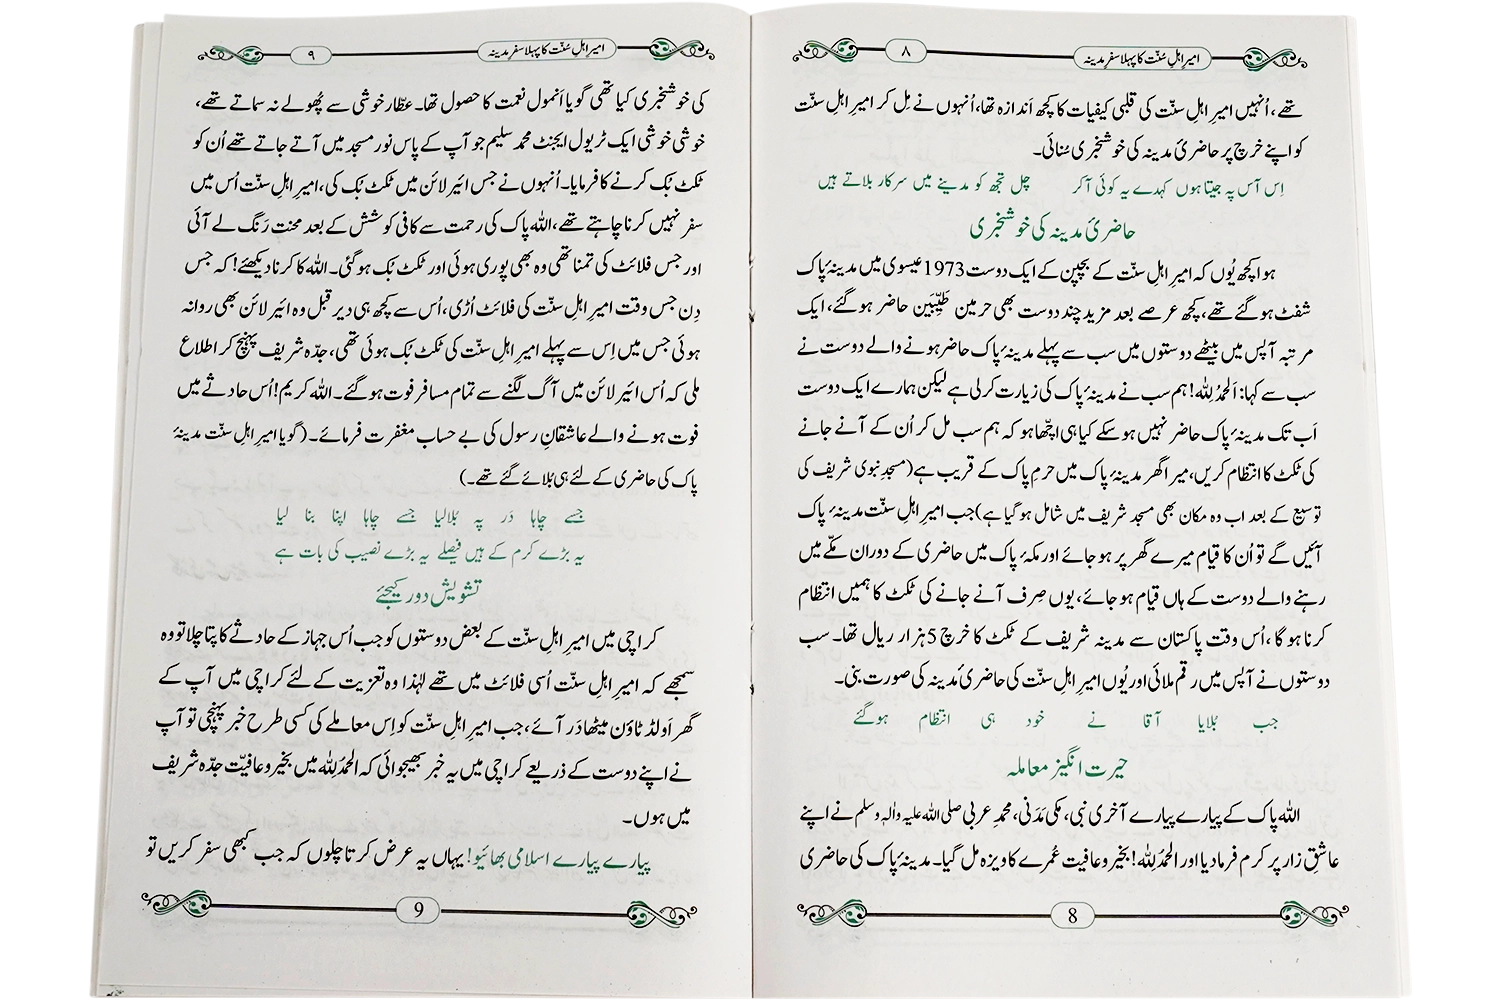 امیرِ اہلِ سُنّت کا پہلا سفرِ مدینہ
۸
تھے، اُنہیں امیرِ اہلِ سنّت کی قلبی کیفیات کا کچھ اَندازہ تھا، اُنہوں نے مِل کر امیرِ اہلِ سنّت
کو اپنے خرچ پر حاضریٔ مدینہ کی خوشخبری سُنائی۔
اِس آس پہ جیتا ہوں کہدے یہ کوئی آکر چل تجھ کو مدینے میں سرکار بلاتے ہیں
حاضریٔ مدینہ کی خوشخبری
ہوا کچھ یُوں کہ امیرِ اہلِ سنّت کے بچپن کے ایک دوست 1973 عیسوی میں مدینۂ پاک
شفٹ ہوگئے تھے، کچھ عرصے بعد مزید چند دوست بھی حرمین طَیِّبَین حاضر ہوگئے، ایک
مرتبہ آپس میں بیٹھے دوستوں میں سب سے پہلے مدینۂ پاک حاضر ہونے والے دوست نے
سب سے کہا: اَلحمدُ لِلّٰہ! ہم سب نے مدینۂ پاک کی زیارت کرلی ہے لیکن ہمارے ایک دوست
اَب تک مدینۂ پاک حاضر نہیں ہوسکے کیا ہی اچّھا ہو کہ ہم سب مل کر اُن کے آنے جانے
کی ٹکٹ کا انتظام کریں، میرا گھر مدینۂ پاک میں حرمِ پاک کے قریب ہے (مسجدِ نبوی شریف کی
توسیع کے بعد اب وہ مکان بھی مسجد شریف میں شامل ہوگیا ہے) جب امیرِ اہلِ سنّت مدینۂ پاک
آئیں گے تو اُن کا قیام میرے گھر پر ہوجائے اور مکۂ پاک میں حاضری کے دوران مکّے میں
رہنے والے دوست کے ہاں قیام ہو جائے، یوں صِرف آنے جانے کی ٹکٹ کا ہمیں انتظام
کرنا ہوگا، اُس وقت پاکستان سے مدینہ شریف کے ٹکٹ کا خرچ 5 ہزار ریال تھا۔ سب
دوستوں نے آپس میں رقم ملائی اور یُوں امیرِ اہلِ سنّت کی حاضریٔ مدینہ کی صورت بنی۔
جب بُلایا آقا نے خود ہی انتظام ہوگئے
حیرت انگیز معاملہ
اللہ پاک کے پیارے پیارے آخری نبی، مکی مَدَنی، محمدِ عربی صلی اللہ علیہ واٰلہٖ وسلم نے اپنے
عاشقِ زار پر کرم فرما دیا اور الحمدُ لِلّٰہ! بخیر و عافیت عُمرے کا ویزہ مل گیا۔ مدینۂ پاک کی حاضری
8
امیرِ اہلِ سُنّت کا پہلا سفرِ مدینہ
۹
کی خوشخبری کیا تھی گویا اَنمول نعمت کا حصول تھا۔ عطّار خوشی سے پُھولے نہ سماتے تھے،
خوشی خوشی ایک ٹریول ایجنٹ محمد سلیم جو آپ کے پاس نور مسجد میں آتے جاتے تھے اُن کو
ٹکٹ بُک کرنے کا فرمایا۔ اُنہوں نے جس ائیر لائن میں ٹکٹ بُک کی، امیرِ اہلِ سنّت اُس میں
سفر نہیں کرنا چاہتے تھے، اللہ پاک کی رحمت سے کافی کوشش کے بعد محنت رَنگ لے آئی
اور جس فلائٹ کی تمنا تھی وہ بھی پوری ہوئی اور ٹکٹ بُک ہوگئی۔ اللہ کا کرنا دیکھئے! کہ جس
دِن جس وقت امیرِ اہلِ سنّت کی فلائٹ اُڑی، اُس سے کچھ ہی دیر قبل وہ ائیر لائن بھی روانہ
ہوئی جس میں اِس سے پہلے امیرِ اہلِ سنّت کی ٹکٹ بُک ہوئی تھی، جدّہ شریف پہنچ کر اطلاع
ملی کہ اُس ائیر لائن میں آگ لگنے سے تمام مسافر فوت ہوگئے۔ اللہ کریم! اُس حادثے میں
فوت ہونے والے عاشقانِ رسول کی بے حساب مغفرت فرمائے۔ (گویا امیرِ اہلِ سنّت مدینۂ
پاک کی حاضری کے لئے ہی بُلائے گئے تھے۔)
جسے چاہا دَر پہ بُلالیا جسے چاہا اپنا بنا لیا
یہ بڑے کرم کے ہیں فیصلے یہ بڑے نصیب کی بات ہے
تشویش دور کیجئے
کراچی میں امیرِ اہلِ سنّت کے بعض دوستوں کو جب اُس جہاز کے حادثے کا پتا چلا تو وہ
سمجھے کہ امیرِ اہلِ سنّت اُسی فلائٹ میں تھے لہٰذا وہ تعزیت کے لئے کراچی میں آپ کے
گھر اَولڈ ٹاؤن میٹھادَر آئے، جب امیرِ اہلِ سنّت کو اِس معاملے کی کسی طرح خبر پہنچی تو آپ
نے اپنے دوست کے ذریعے کراچی میں یہ خبر بھیجوائی کہ الحمدُ لِلّٰہ میں بخیر و عافیّت جدّہ شریف
میں ہوں۔
پیارے پیارے اسلامی بھائیو! یہاں یہ عرض کرتا چلوں کہ جب کبھی سفر کریں تو
9